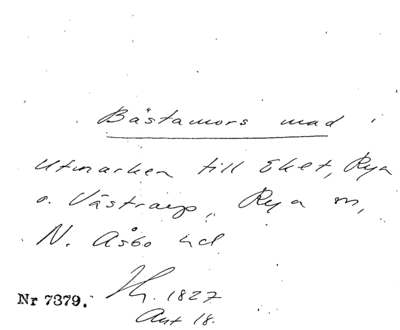 Bästamors mad i
utmarken till Eket, Rya
o. Västrarp, Rya sn,
N. Åsbo hd
Nr 7379. 1827
Akt 18.